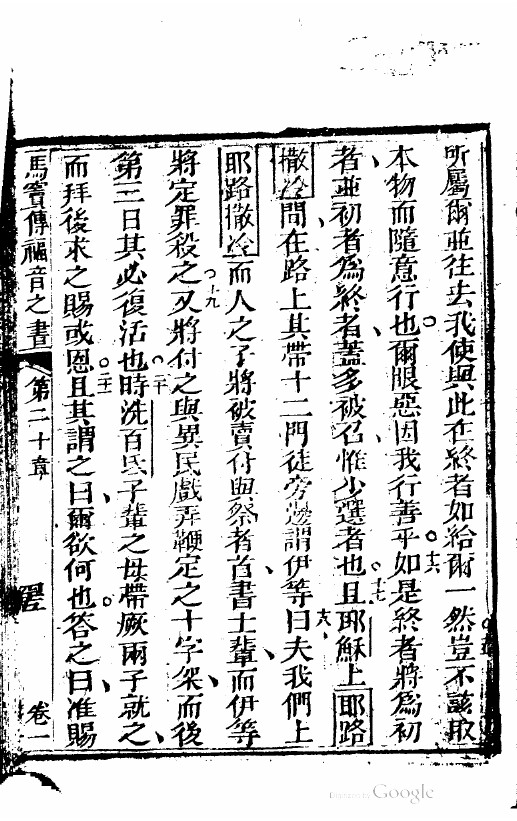 所屬爾並往去我使與此在終者如給爾一然豈不該取
本物而隨意行也。爾眼惡因我行善乎。十六如是終者將爲初
者並初者爲終者蓋多被召惟少選者也。十七且耶穌上耶路
撒冷間在路上其帶十二門徒旁邊謂伊等曰十八夫我們上
耶路撒冷而人之子將被賣付與祭者首書士輩而伊等
將定罪殺之。十九又將付之與異民戲弄鞭定之十字架而後
第三日其必復活也。二十時洗百氐子輩之母帶厥兩子就之
而拜後求之賜或恩。二一且其謂之曰爾欲何也。答之曰准賜
馬竇傳福音之書 第二十章 卷一
Digitized by Google